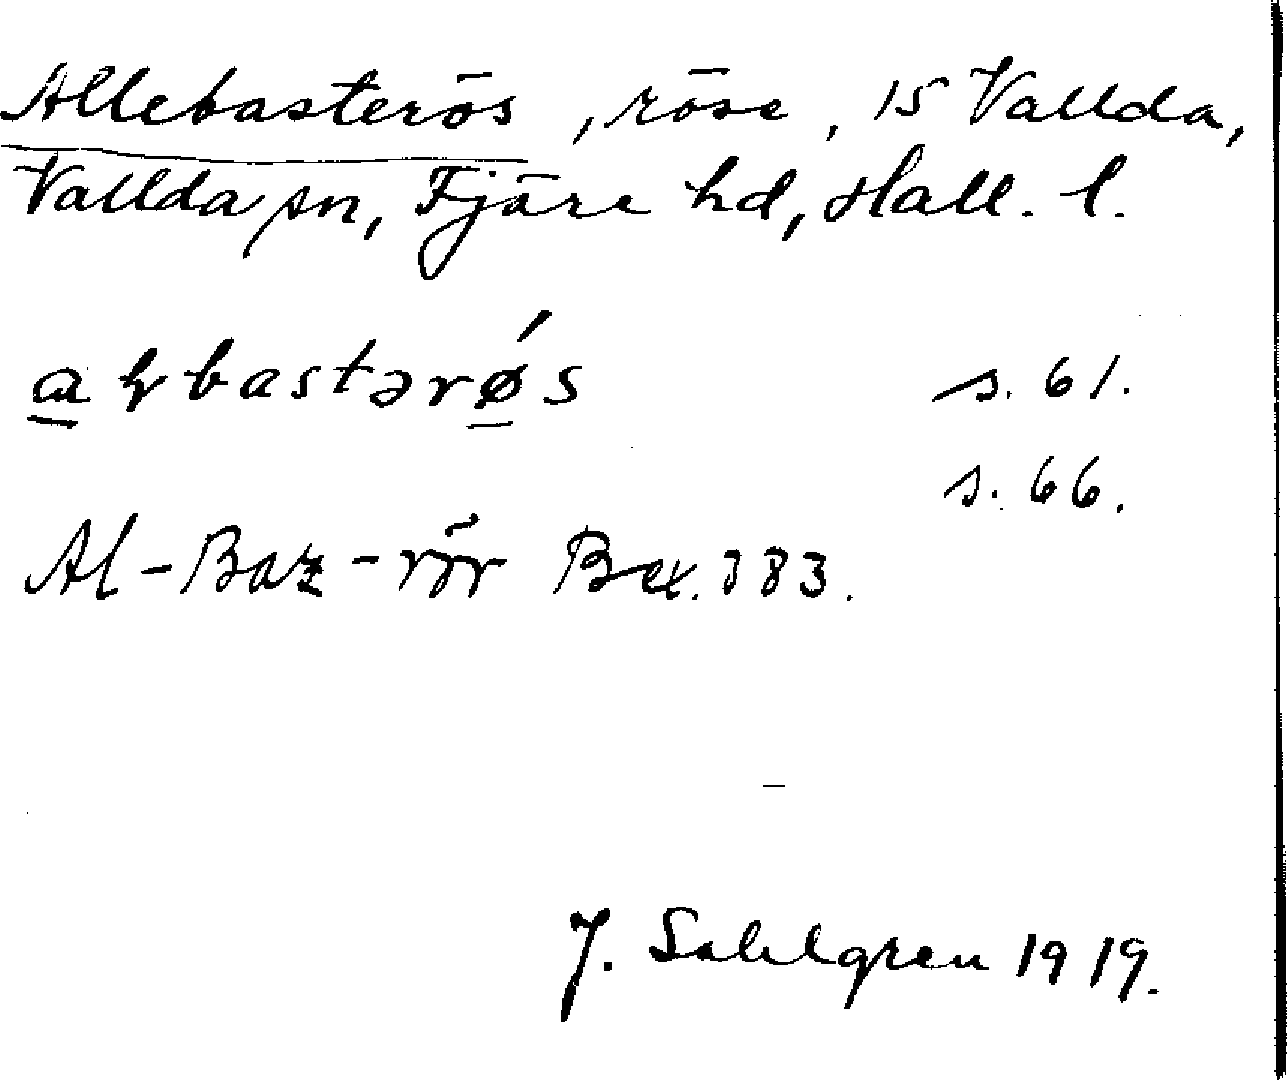 Allebasterös, röse, 15 Vallda,
Vallda sn, Fjäre hd, Hall. l.
aɫbastərǿs s. 61.
s. 66.
Al-Baz-rör Bex. 383.
J. Sahlgren 1919.